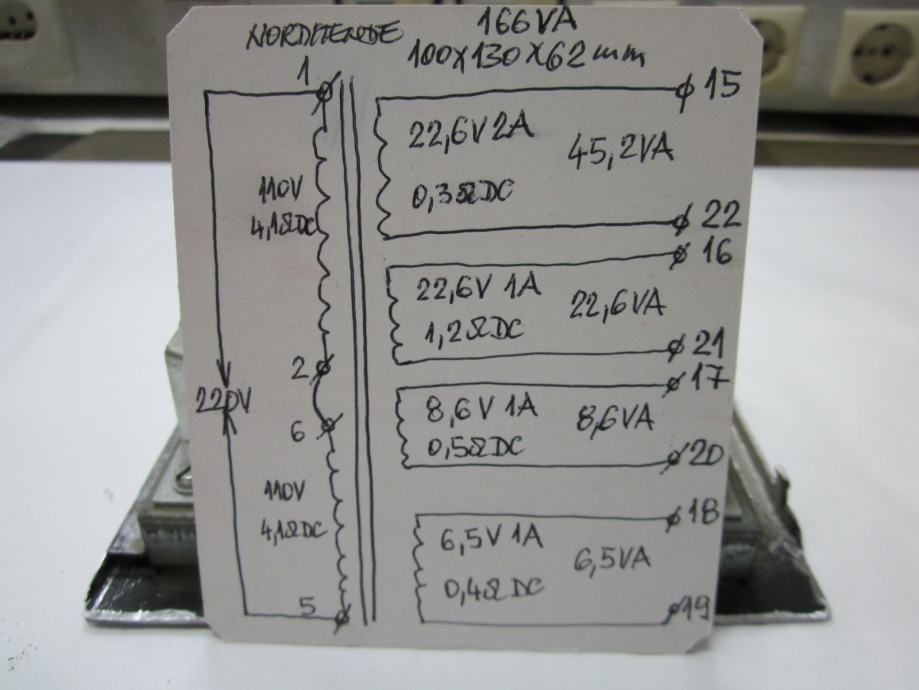 NORDMENDE 166VA
100x130x62mm
1
15
22,6V 2A 45,2VA
110V
0,3ΩDC
4,1ΩDC
22
16
22,6V 1A 22,6VA
1,2ΩDC
21
2
17
220V
8,6V 1A 8,6VA
6
0,5ΩDC
20
110V
18
4,1ΩDC
6,5V 1A 6,5VA
0,4ΩDC
5
19